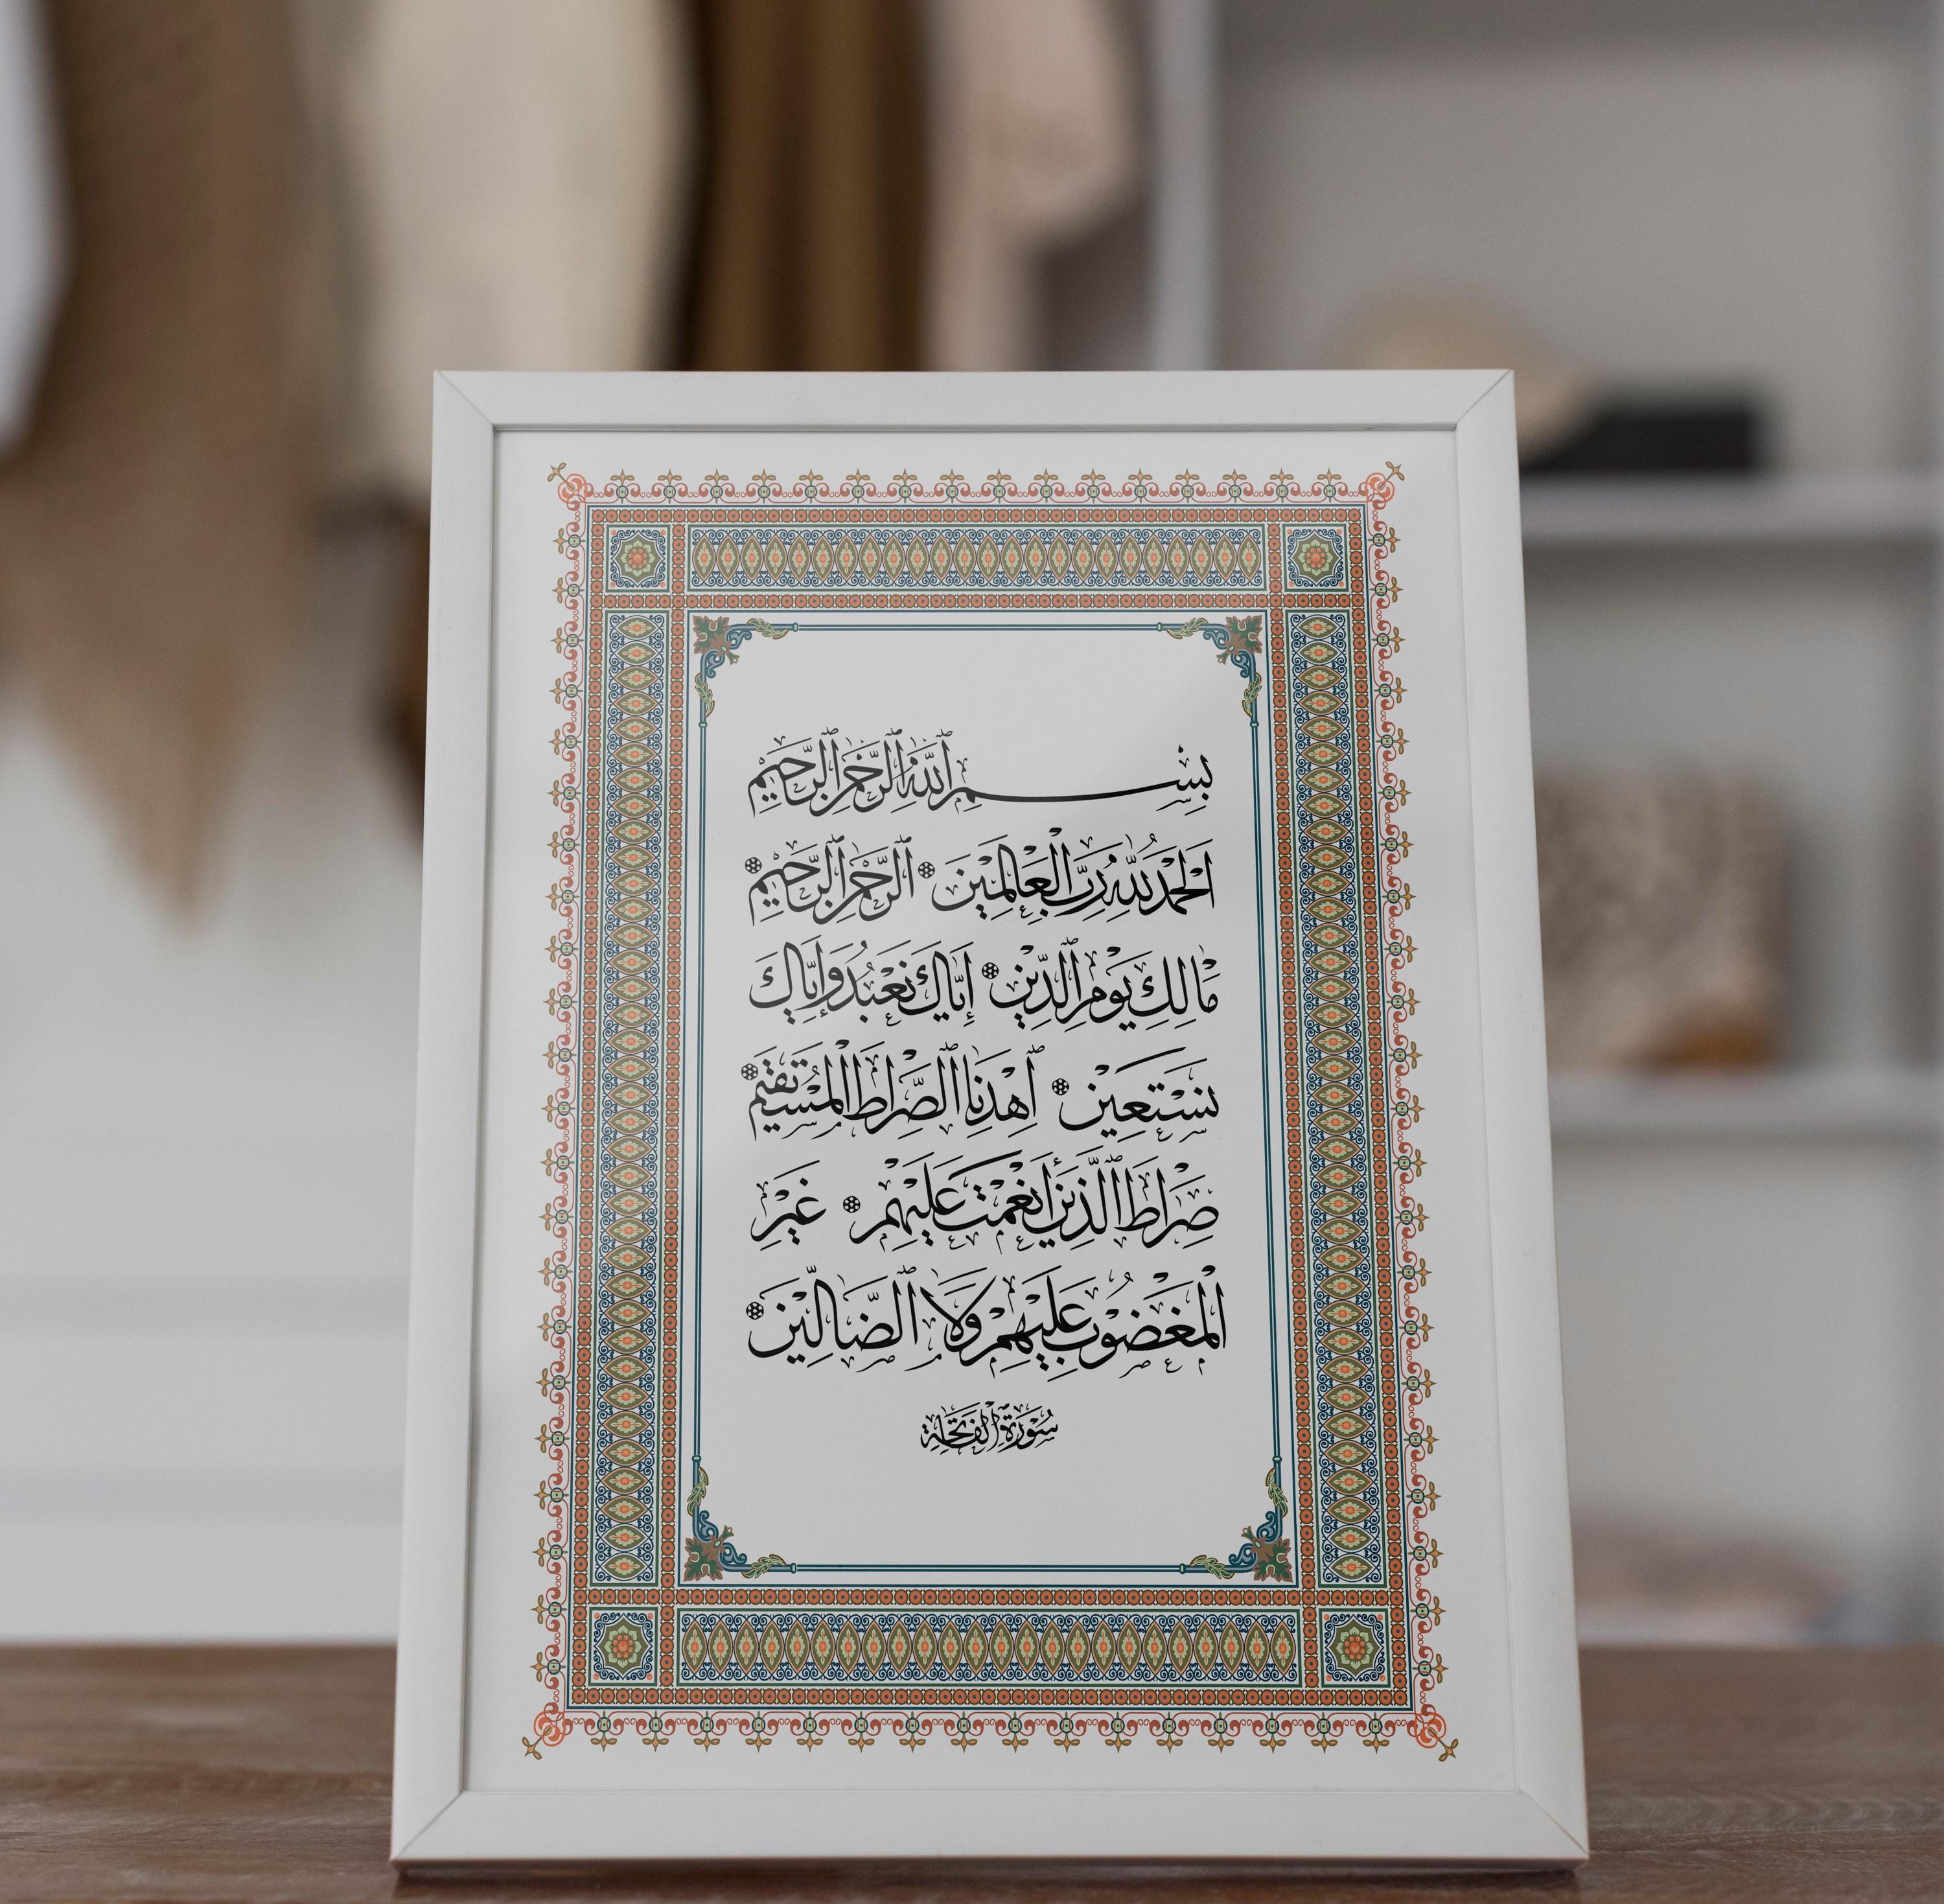 بِسْمِ ٱللَّهِ ٱلرَّحْمَٰنِ ٱلرَّحِيمِ
اَلْحَمْدُ لِلَّهِ رَبِّ الْعَالَمِيْنَ ۞ ٱلرَّحْمٰنِ ٱلرَّحِيْمِ ۞
مَالِكِ يَوْمِ ٱلدِّيْنِ ۞ إِيَّاكَ نَعْبُدُ وَإِيَّاكَ
نَسْتَعِيْنُ ۞ ٱهْدِنَا ٱلصِّرَاطَ الْمُسْتَقِيْمَ ۞
صِرَاطَ ٱلَّذِيْنَ أَنْعَمْتَ عَلَيْهِمْ ۞ غَيْرِ
الْمَغْضُوْبِ عَلَيْهِمْ وَلَا ٱلضَّالِّيْنَ ۞
سُوْرَةُ الْفَاتِحَة